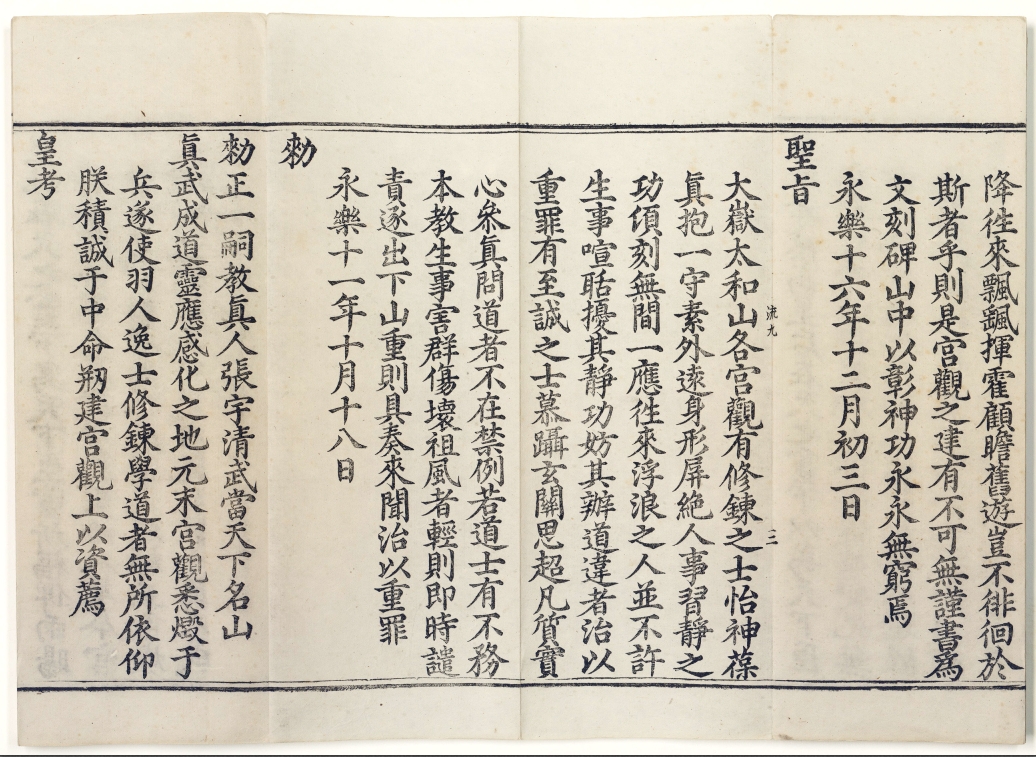 降徃來飄飄揮霍顧瞻舊遊豈不徘徊於
斯者乎則是宮觀之建有不可無謹書爲
文刻碑山中以彰神功永永無窮焉
永樂十六年十二月初三日
聖旨
流九
三
大嶽太和山各宮觀有修鍊之士怡神葆
眞抱一守素外遠身形屏絶人事習靜之
功頃刻無間一應徃來浮浪之人並不許
生事喧聒擾其靜功妨其辦道違者治以
重罪有至誠之士慕躡玄關思超凡質實
心叅眞問道者不在禁例若道士有不務
本教生事害群傷壞祖風者輕則即時譴
責逐出下山重則具奏來聞治以重罪
永樂十一年十月十八日
勑
勑正一嗣教眞人張宇清武當天下名山
眞武成道靈應感化之地元末宮觀悉燬于
兵遂使羽人逸士修鍊學道者無所依仰
朕積誠于中命剏建宮觀上以資薦
皇考